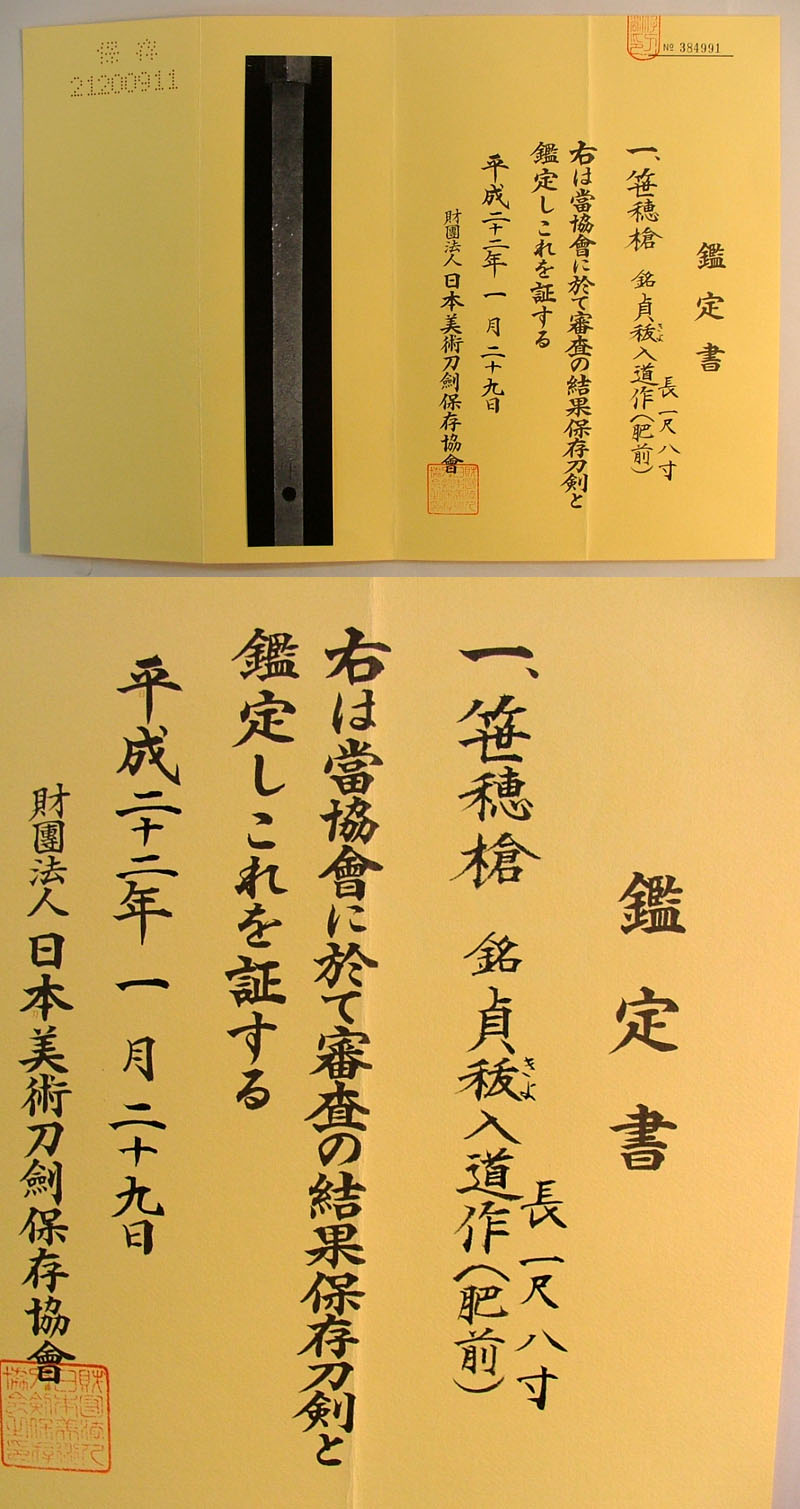 保存
21200911
№ 384991
鑑定書
一、笹穂槍 銘 貞秡入道作(肥前)
きよ
長 一尺八寸
右は當協會に於て審査の結果保存刀剣と
鑑定しこれを証する
平成二十二年 一月二十九日
財團法人 日本美術刀劍保存協會
鑑定書
一、笹穂槍 銘 貞秡入道作(肥前)
きよ
長 一尺八寸
右は當協會に於て審査の結果保存刀剣と
鑑定しこれを証する
平成二十二年 一月二十九日
財團法人 日本美術刀劍保存協會